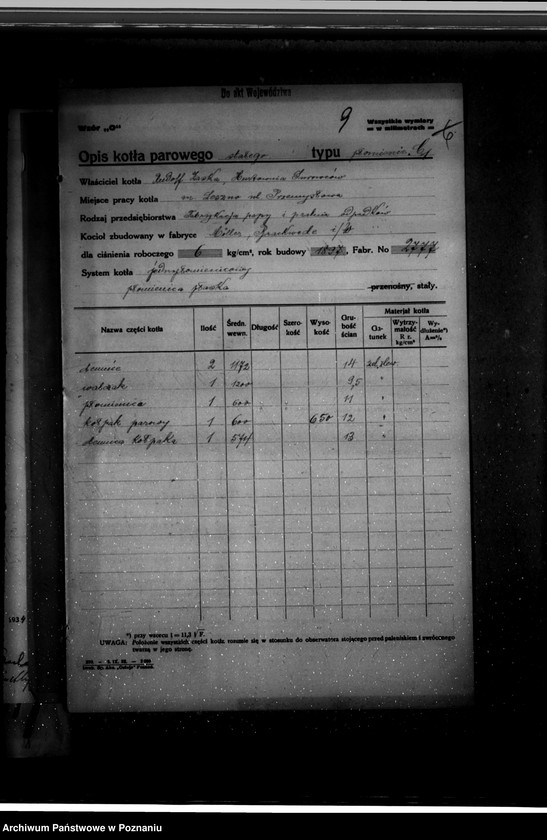 Do akt Województwa
9
Wzór „G"
Wszystkie wymiary
— w milimetrach —
Opis kotła parowego stałego typu
Właściciel kotła Rudolf
Miejsce pracy kotła m. Leszno ul. Przemysłowa
Rodzaj przedsiębiorstwa Fabrykacja papy i
Kocioł zbudowany w fabryce
dla ciśnienia roboczego 6 kg/cm², rok budowy 1897, Fabr. No 2777
System kotła jednopłomienicowy
płomienica gładka przenośny, stały.
Nazwa części kotła Ilość Średn. wewn. Długość Szerokość Wysokość Grubość ścian Materjał kotła
Gatunek Wytrzymałość R z. kg/mm² Wydłużenie*) A=%
dennica 2 1172 14 żel. zlew.
walczak 1 1200 9,5 "
płomienica 1 600 11 "
kołpak parowy 1 600 650 12 "
dennica kołpaka 1 574 13 "
*) przy wzorcu l = 11,3 √F.
UWAGA: Położenie wszystkich części kotła rozumie się w stosunku do obserwatora stojącego przed paleniskiem i zwróconego
twarzą w jego stronę.
1934
Archiwum Państwowe w Poznaniu